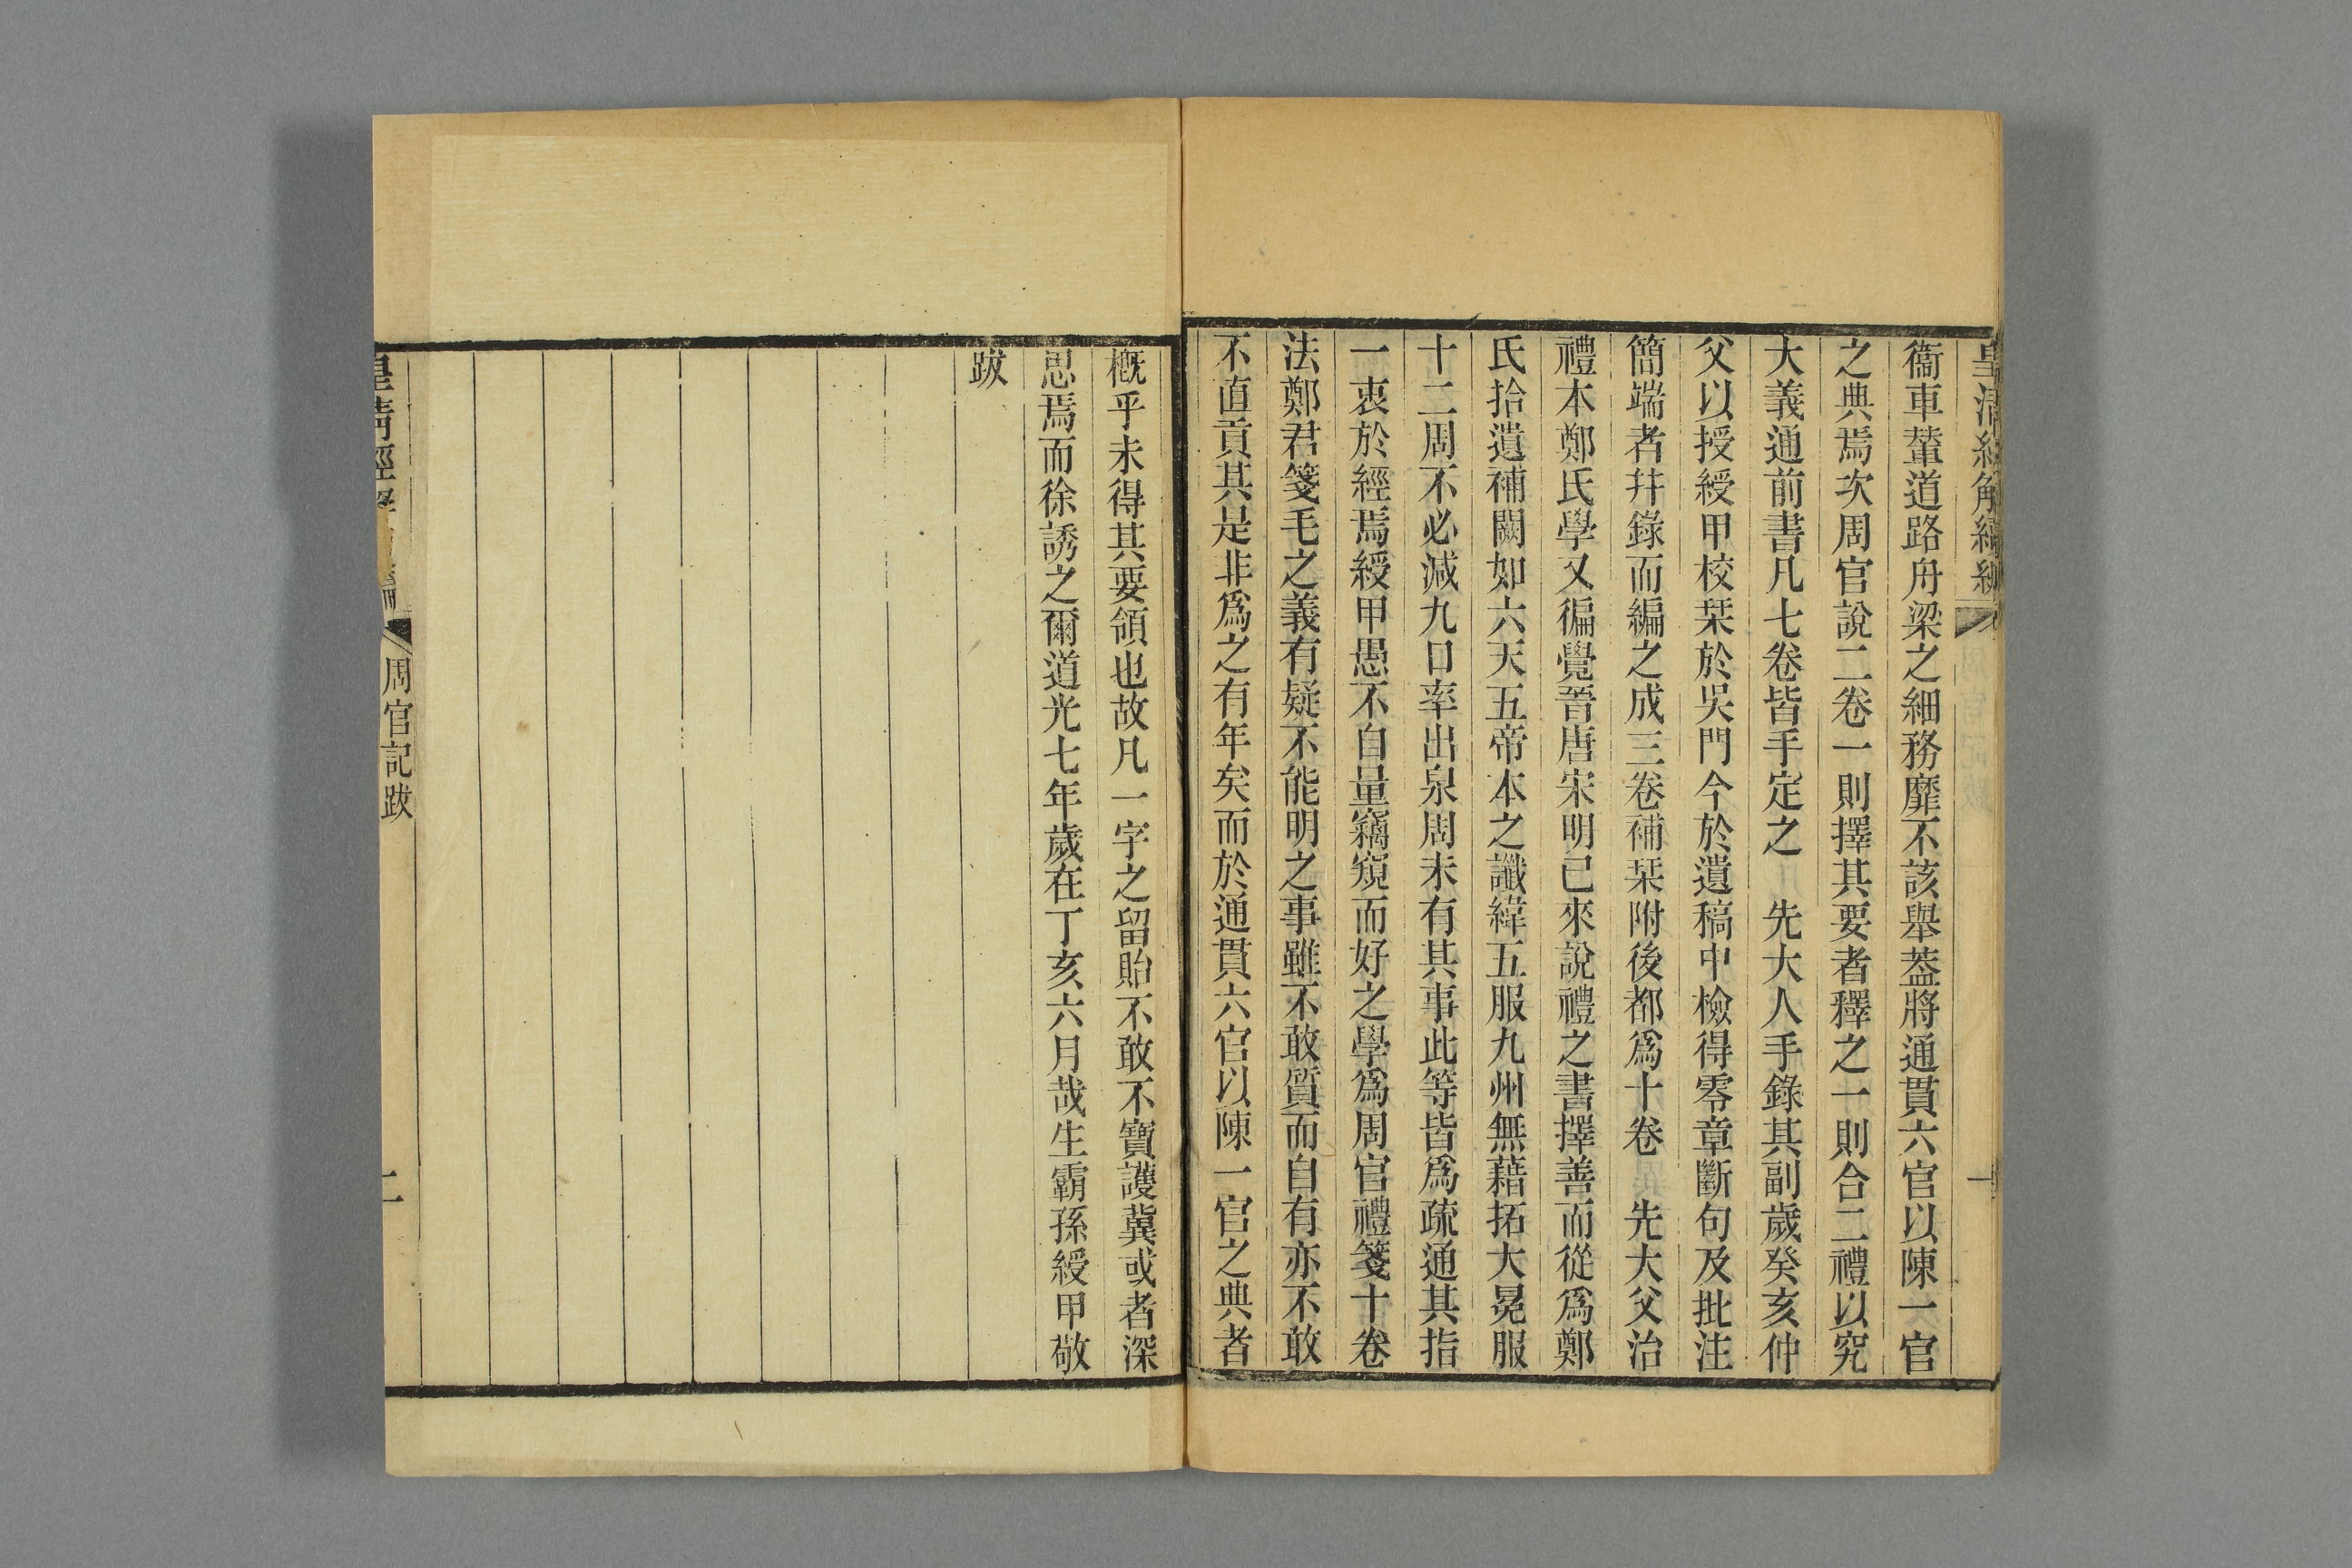 皇清經解續編
一
衞車輦道路舟梁之細務靡不該舉葢將通貫六官以陳一官
之典焉次周官說二卷一則擇其要者釋之一則合二禮以究
大義通前書凡七卷皆手定之 先大人手錄其副歲癸亥仲
父以授綬甲校栞於吳門今於遺稿中檢得零章斷句及批注
簡端者幷錄而編之成三卷補栞附後都爲十卷 先大父治
禮本鄭氏學又徧覺晉唐宋明已來說禮之書擇善而從爲鄭
氏拾遺補闕如六天五帝本之讖緯五服九州無藉拓大冕服
十二周不必減九口率出泉周未有其事此等皆爲疏通其指
一衷於經焉綬甲愚不自量竊窺而好之學爲周官禮箋十卷
法鄭君箋毛之義有疑不能明之事雖不敢質而自有亦不敢
不直貢其是非爲之有年矣而於通貫六官以陳一官之典者
概乎未得其要領也故凡一字之留貽不敢不寶護冀或者深
思焉而徐誘之爾道光七年歲在丁亥六月哉生霸孫綬甲敬
跋
皇清經
編
周官記跋
二